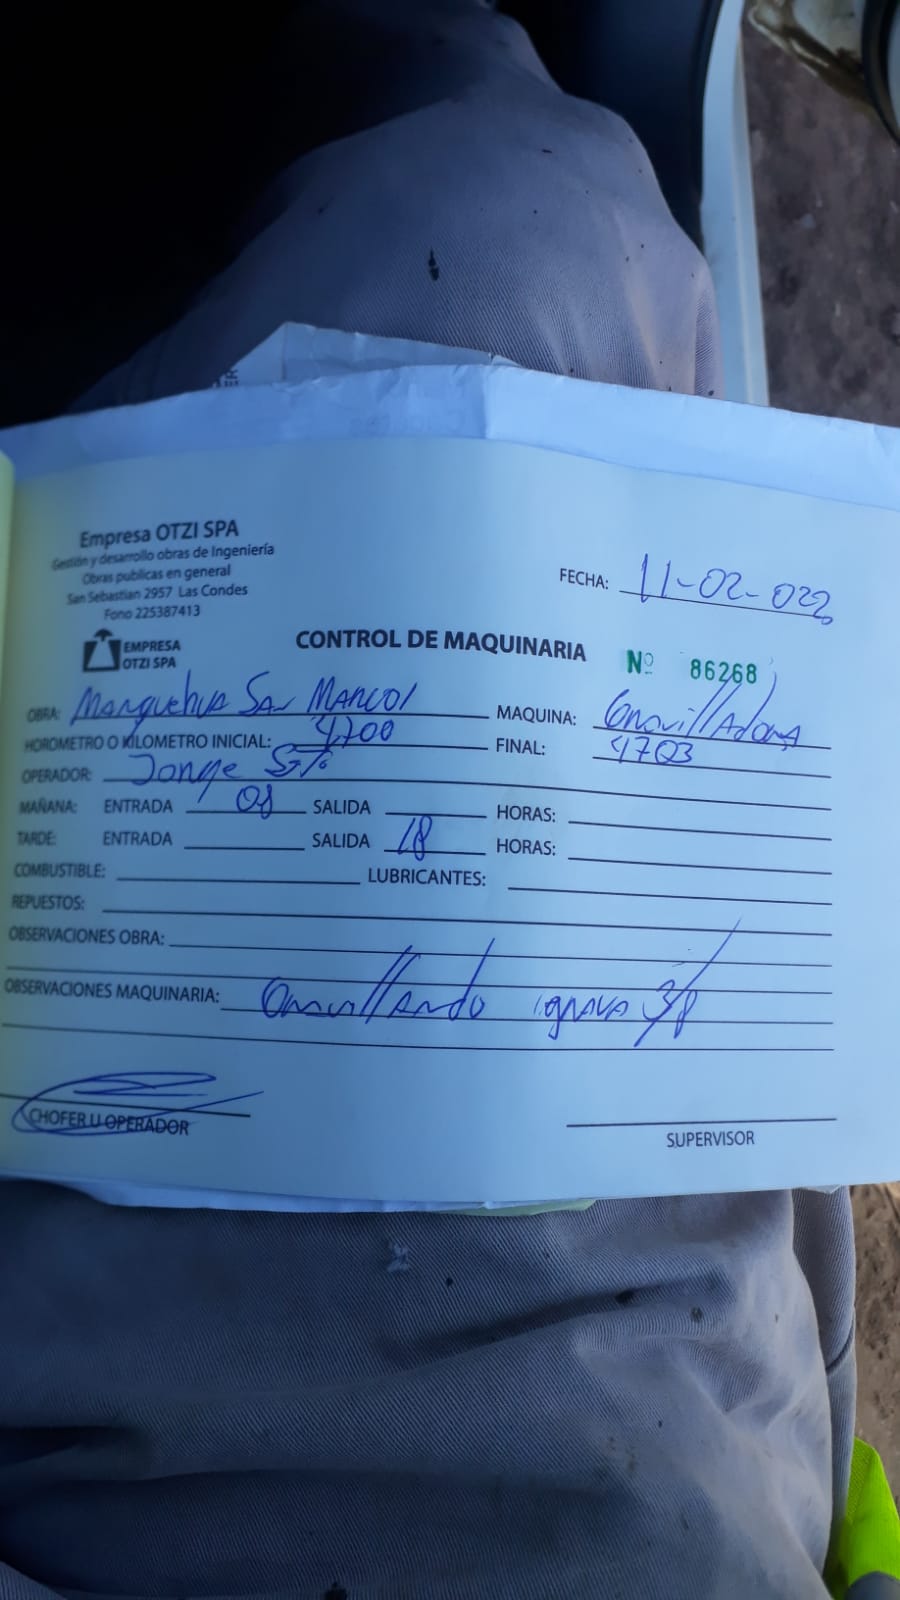 Empresa OTZI SPA
Gestión y desarrollo obras de Ingeniería
Obras publicas en general
San Sebastian 2957 Las Condes
Fono 225387413
EMPRESA
OTZI SPA
FECHA: 11-02-022
CONTROL DE MAQUINARIA
Nº 86268
OBRA: Manquehua San Marcos MAQUINA: Gravilladora
HOROMETRO O KILOMETRO INICIAL: 4700 FINAL: 4703
OPERADOR: Jorge
MAÑANA: ENTRADA 08 SALIDA HORAS:
TARDE: ENTRADA SALIDA 18 HORAS:
COMBUSTIBLE: LUBRICANTES:
REPUESTOS:
OBSERVACIONES OBRA:
OBSERVACIONES MAQUINARIA: grava 3/8
CHOFER U OPERADOR
SUPERVISOR